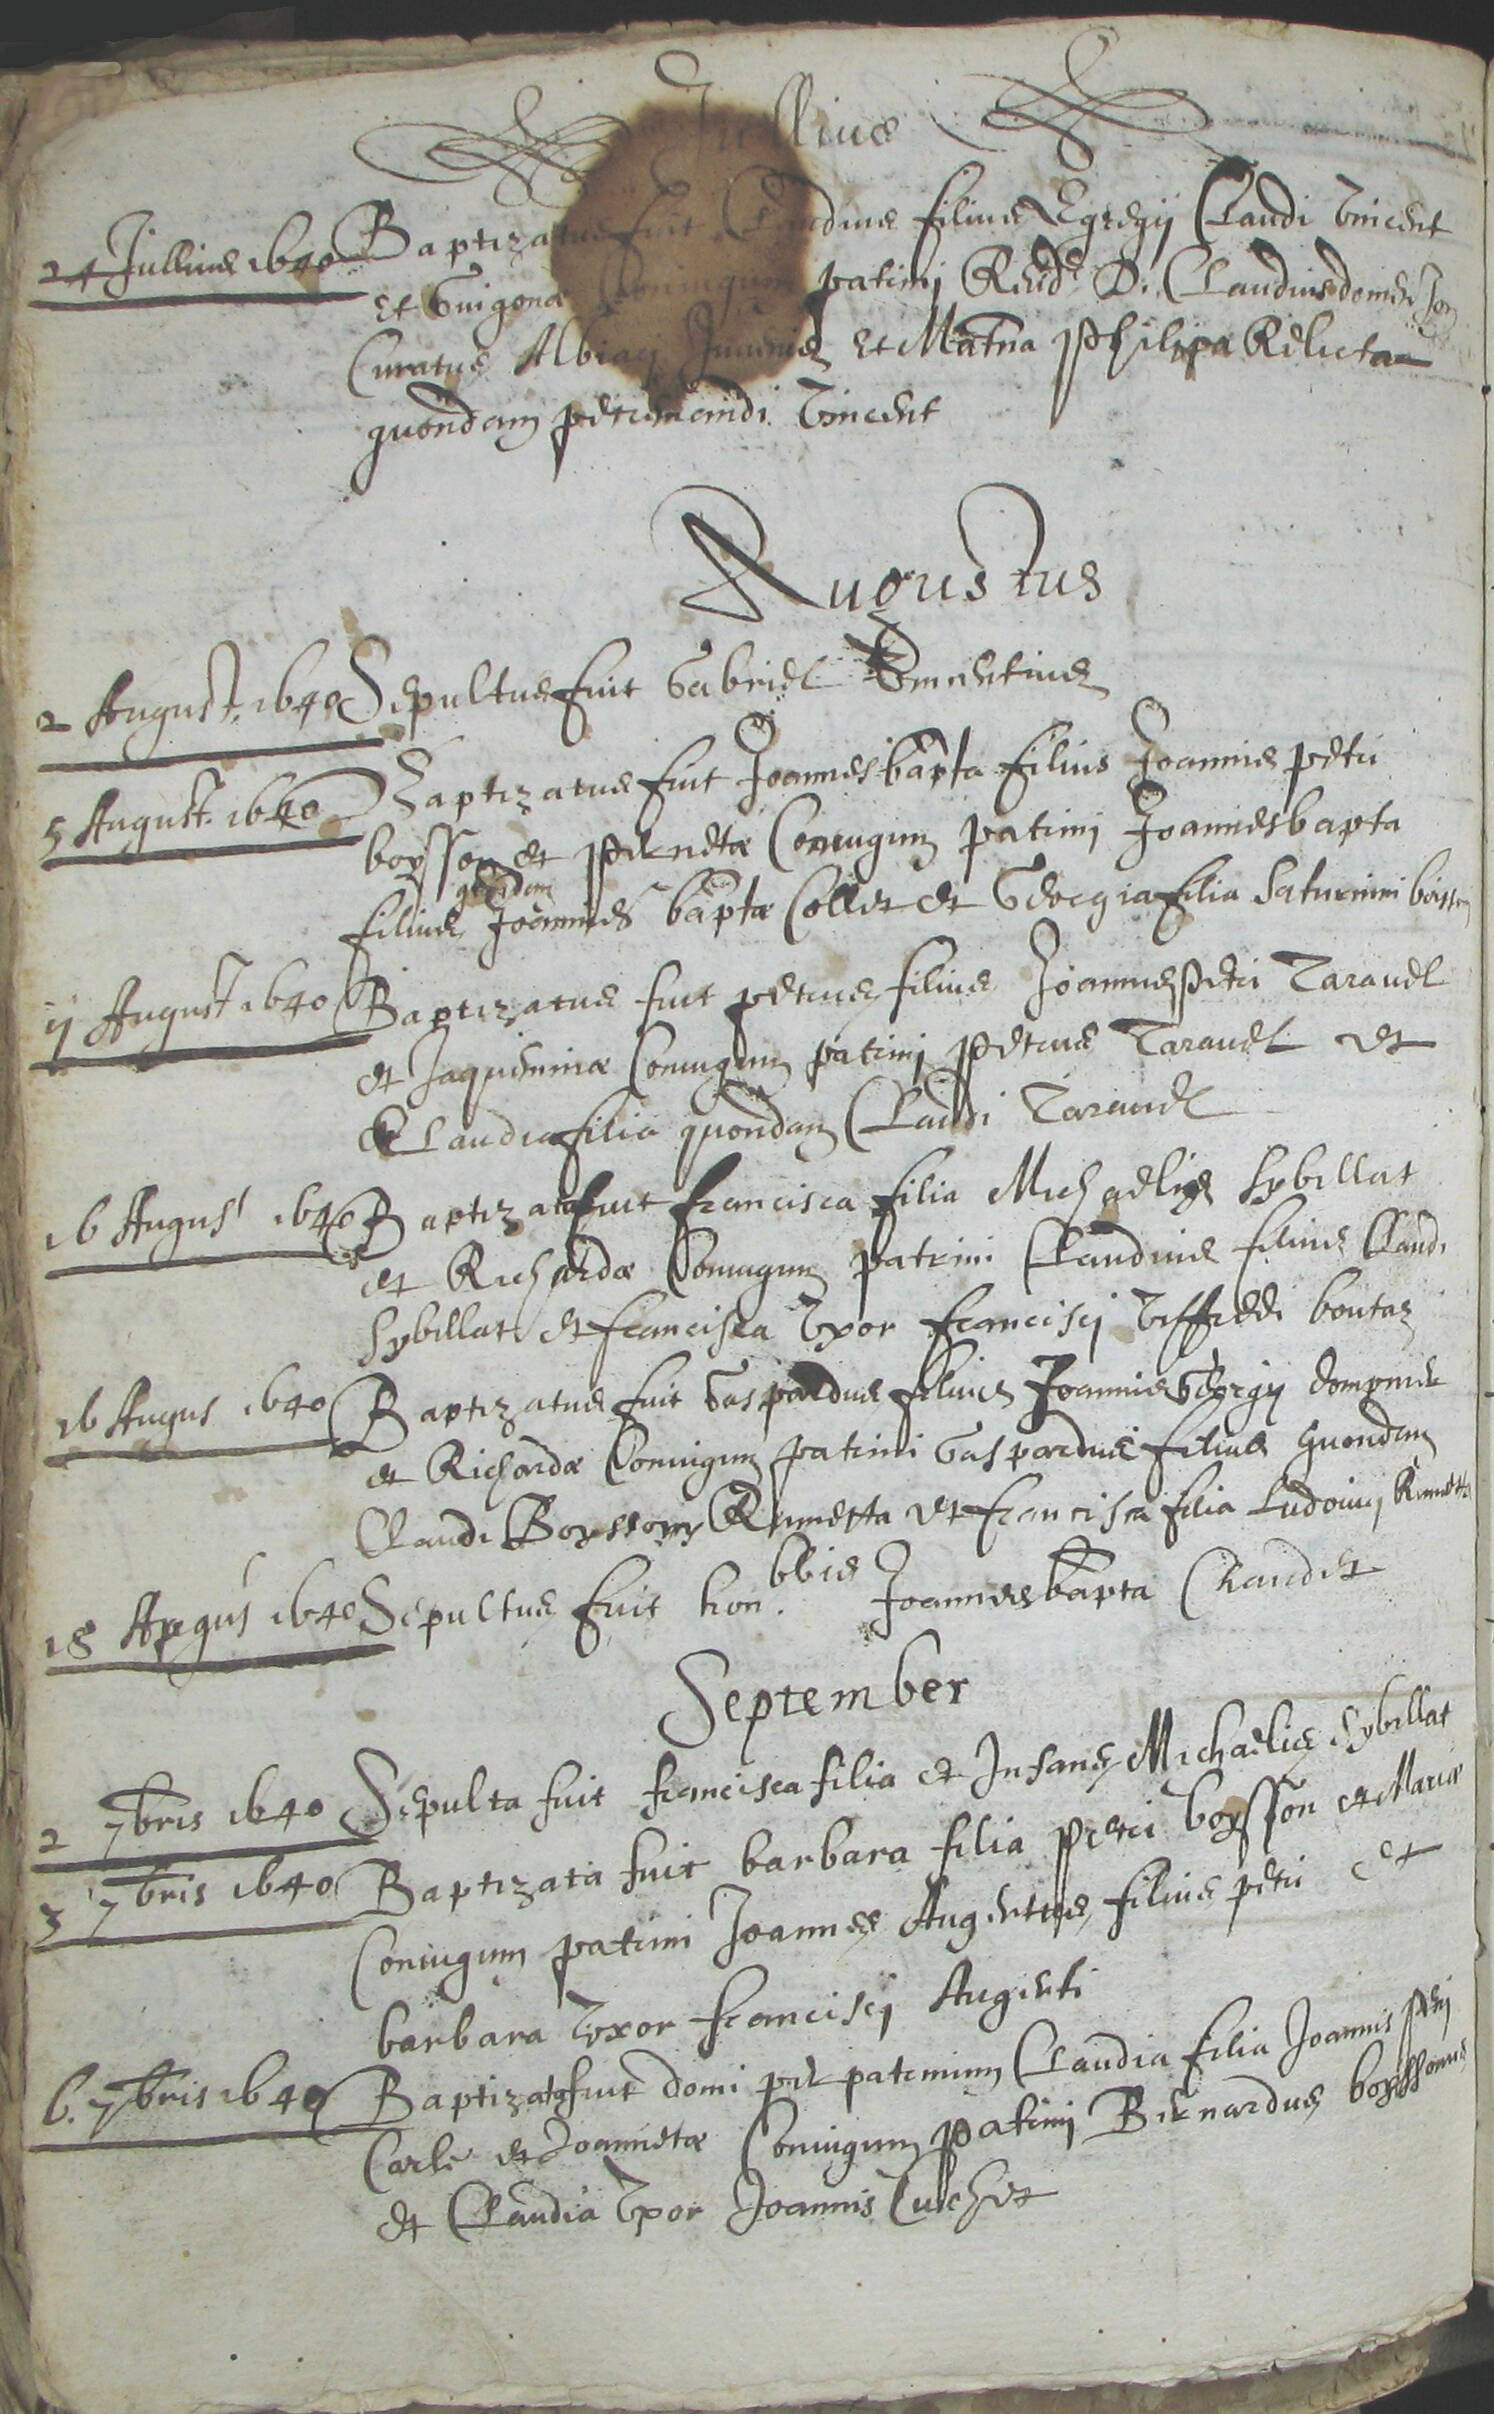 Jullius
24 Jullius 1640 Baptizatus fuit Claudius filius Egregij Claudi Vincent
et Guigonæ Coniugum patrini Rd. D. Claudius
Curatus Albiaci Iunioris et Matrina Philipa Relicta
quondam petri Vincent
Augustus
2 August. 1640 Sepultus fuit Gabriel Vincentius
5 August. 1640 Baptizatus fuit Joannes bapta filius Joannis petri
boysson et pernetæ Coniugum patrini Joannes bapta
quondam
filius Joannis baptæ Collet et Georgia filia Saturnini boisson
11 August 1640 Baptizatus fuit petrus filius Joannis Petri Taravel
et Jaqueminæ Coniugum patrini Petrus Taravel et
Claudia filia quondam Claudi Taravel
16 August 1640 Baptizata fuit francisca filia Michaelis Sybillat
et Richardæ Coniugum patrini Claudius filius Claudi
Sybillat et francisca Vxor francisci Viffredi boutaz
16 Augus 1640 Baptizatus fuit Gaspardus filius Joannis Georgij
et Richardæ Coniugum patrini Gaspardus filius quondam
Claudi Boysson Rametta et francisca filia Ludovici Rametta
18 Augus 1640 Sepultus fuit hon.bbis Joannes bapta Chaudet
September
2 7bris 1640 Sepulta fuit francisca filia et Infans Michaelis Sybillat
3 7bris 1640 Baptizata fuit barbara filia Petri boysson et Mariæ
Coniugum patrini Joannes Augertus filius petri et
barbara Vxor francisci Augerti
6. 7bris 1640 Baptizata fuit domi per patrinum Claudia filia Joannis Petri
Carle et Joannetæ Coniugum patrini Bernardus boyssonus
et Claudia Vxor Joannis Culchet